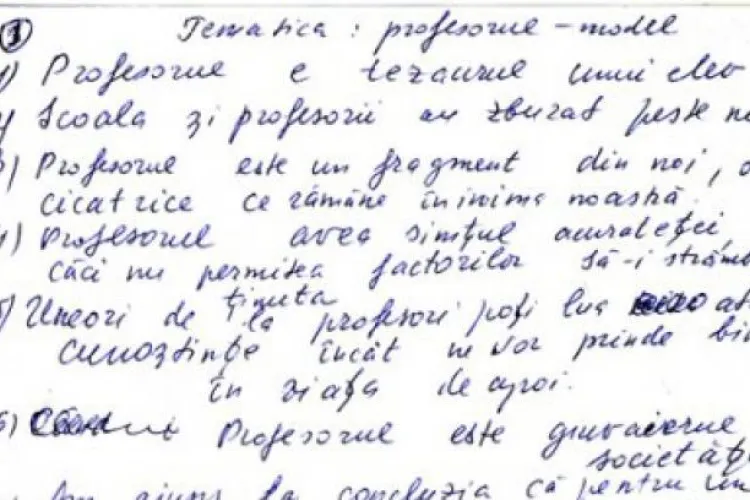 ③ Tematica : profesorul - model
1) Profesorul e tezaurul unui elev
2) Școala și profesorii au zburat peste n
3) Profesorul este un fragment din noi, o
cicatrice ce rămâne în inima noastră.
4) Profesorul avea simțul acurateței,
căci nu permitea factorilor să-i strâmb
ținuta
5) Uneori de la profesori poți lua at
cunoștințe încât ne vor prinde bin
în viața de apoi.
6) Profesorul este giuvaierul
societăț
Am ajuns la concluzia că pentru un